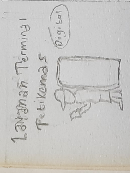 Layanan Terminal
Petikemas
Digital